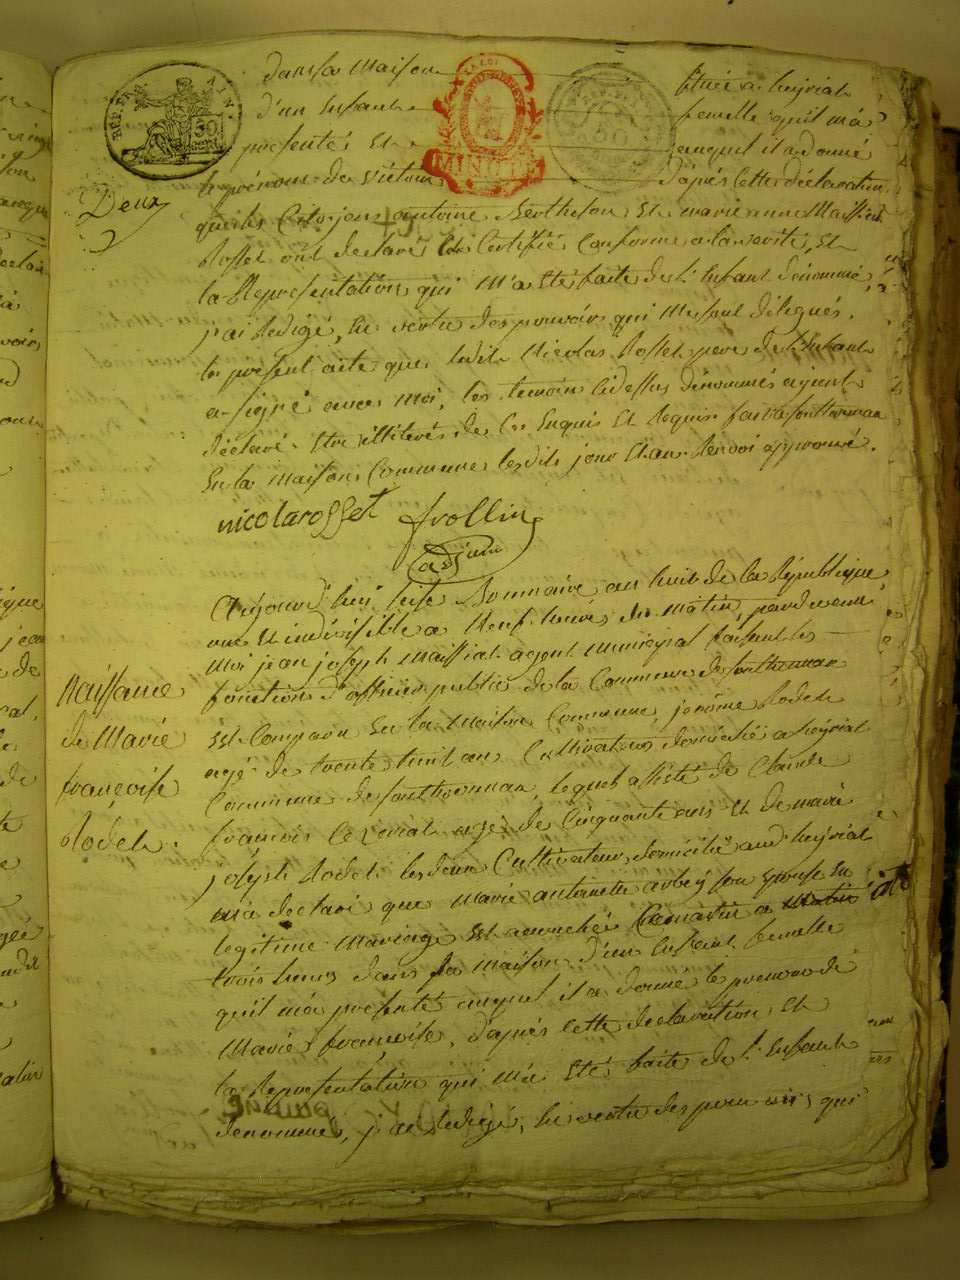 dans sa maison située a heyriat
d'un Enfant femelle quil m'a
présenté Et auquel il a donné
le prénom de victoire d'après cette déclaration
Deux
que les Citoyens antoine Berthelon Et marie anne Maissiat
Rosset ont déclaré Et Certifié Conforme a la verité, Et
la Représentation qui M'a Eté faite de l'Enfant dénommé,
j'ai Redigé, En vertu des pouvoirs qui Me sont délegués.
le présent acte que ledit Nicolas Rosset pere de l'Enfant
a signé avec Moi, les temoins cidessus dénommés ayant
déclaré Etre illitérés de Ce Enquis Et Requis fait a
En la Maison Commune lesdits jour Et an. Renvoi approuvé.
nicola rosset frollin
adjoint
Aujourd'hui seize Brumaire an huit de la République
une Et indivisible a Neuf heures du matin, pardevant
Moi jean joseph Maissiat agent municipal faisant les
fonction d'officier public de la Commune de
Est Comparu En la Maison Commune, jerôme Rodet
agé de trente huit ans Cultivateur domicilié a heyriat
Commune de lequel assisté de Claude
françois agé de Cinquante ans Et de marie
joseph Rodet les deux Cultivateurs domicilié aud heyriat
m'a declaré que Marie antoinette son Epouse En
legitime Mariage Est accouchée Cematin a
trois heures dans sa maison d'un Enfant femelle
quil m'a présenté auquel il a donné le prenom de
Marie françoise, d'après cette declaration Et
la Representation qui m'a Eté faite de l'Enfant
denommé, j'ai Redigé, En vertu des pouvoirs qui
Naissance
de Marie
françoise
Rodet.